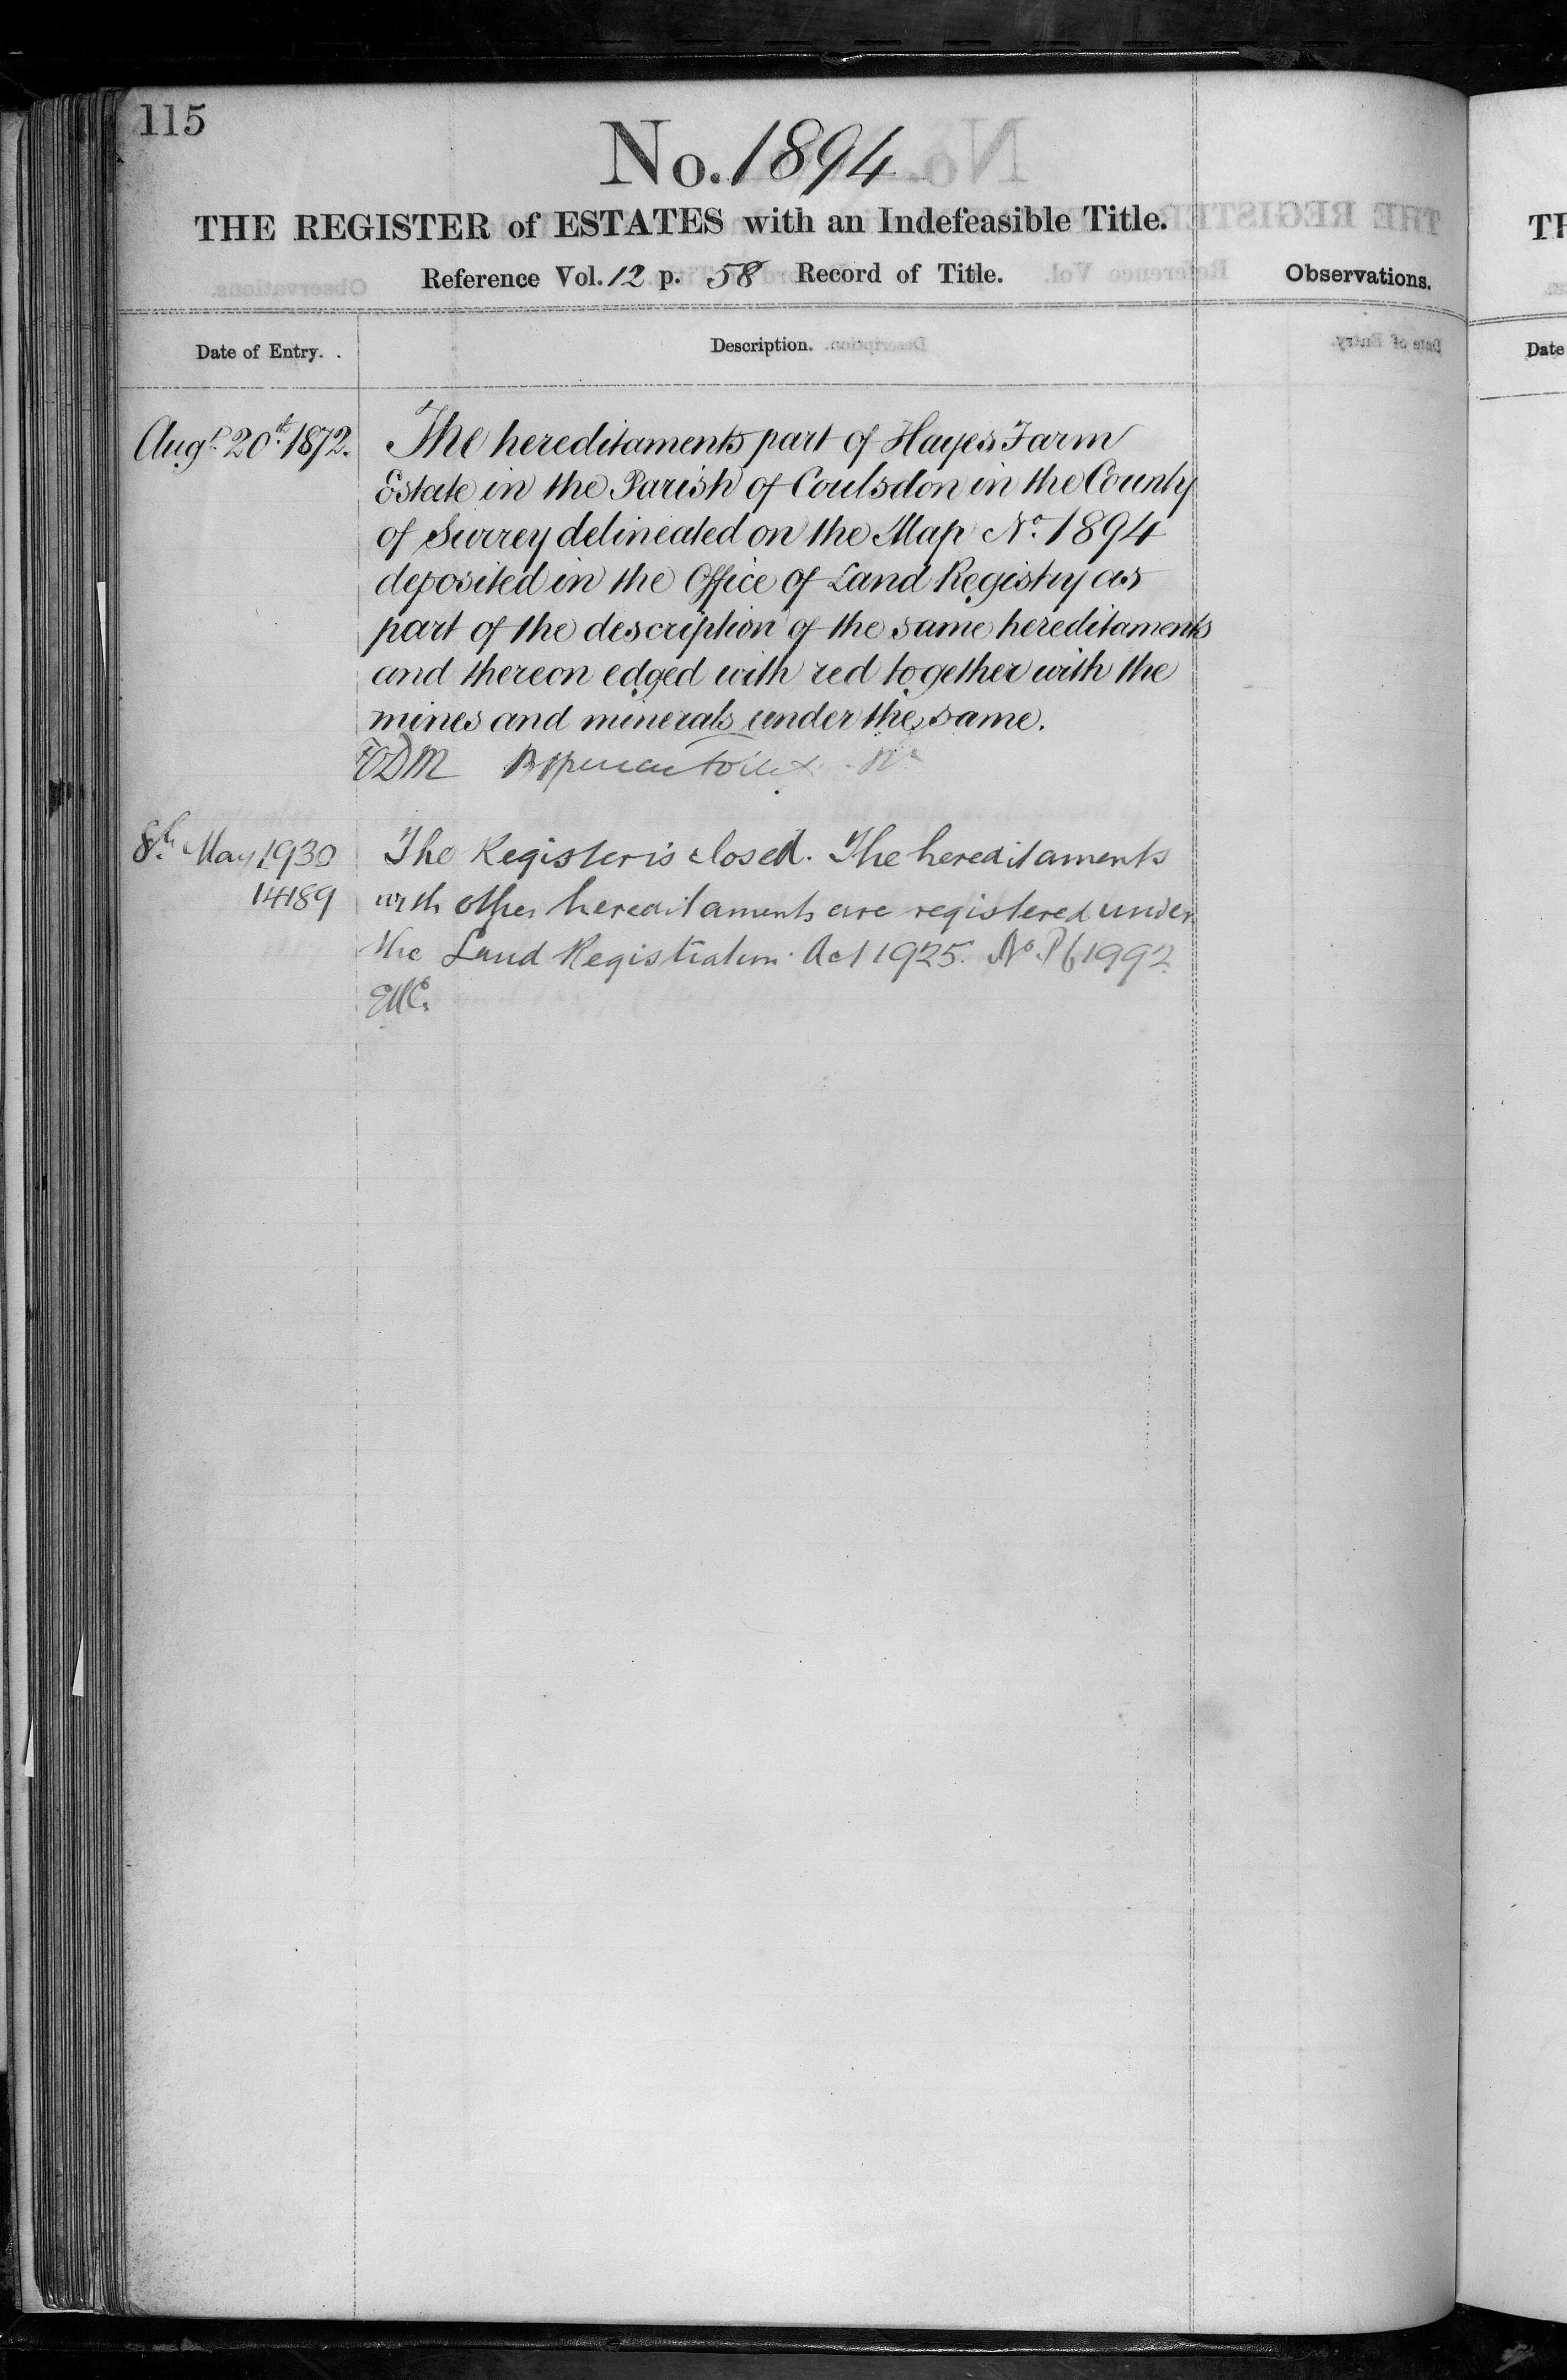 115
No. 1894
THE REGISTER of ESTATES with an Indefeasible Title.
Reference Vol. 12 p. 58 Record of Title.
Observations.
Date of Entry.
Description.
Augt 20th 1872.
The hereditaments part of Hayes Farm
Estate in the Parish of Coulsdon in the County
of Surrey delineated on the Map No. 1894
deposited in the Office of Land Registry as
part of the description of the same hereditaments
and thereon edged with red together with the
mines and minerals under the same.
8th May 1930
14189
The Register is closed. The hereditaments
with other hereditaments are registered under
the Land Registration Act 1925. No. P61992
Date